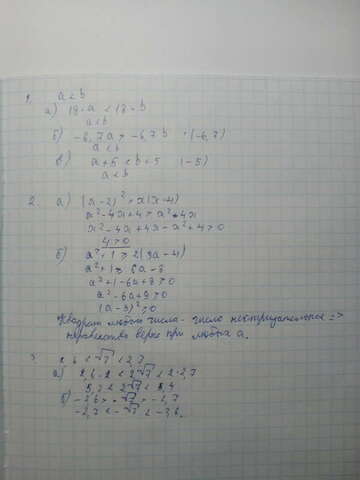 1. a < b
а) 18·a < 18·b
a < b
б) -6,7a > -6,7b :(-6,7)
a < b
в) a+5 < b+5 (-5)
a < b
2. а) (a-2)² > a(a-4)
a²-4a+4 > a²-4a
a²-4a+4a-a²+4>0
4>0
б) a²+1 ≥ 2(3a-4)
a²+1 ≥ 6a-8
a²+1-6a+8≥0
a²-6a+9≥0
(a-3)²≥0
Квадрат любого числа - число неотрицательное =>
неравенство верно при любых a.
3. 2,6 < √7 < 2,7
а) 2,6·2 < 2√7 < 2·2,7
5,2 < 2√7 < 5,4
б) -2,6 > -√7 > -2,7
-2,7 < -√7 < -2,6.